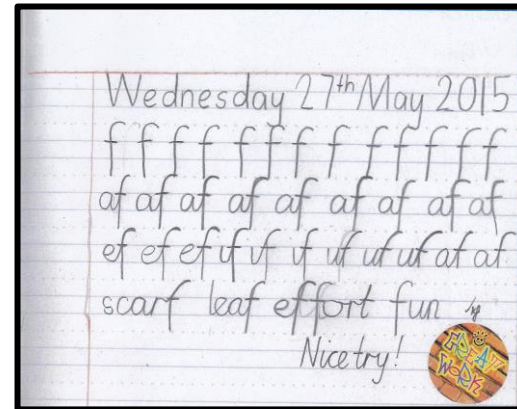 Wednesday 27th May 2015
f f f f f f f f f f f f f
af af af af af af af af af
ef ef ef if if if uf uf uf af af
scarf leaf effort fun
Nice try!
GREAT
WORK